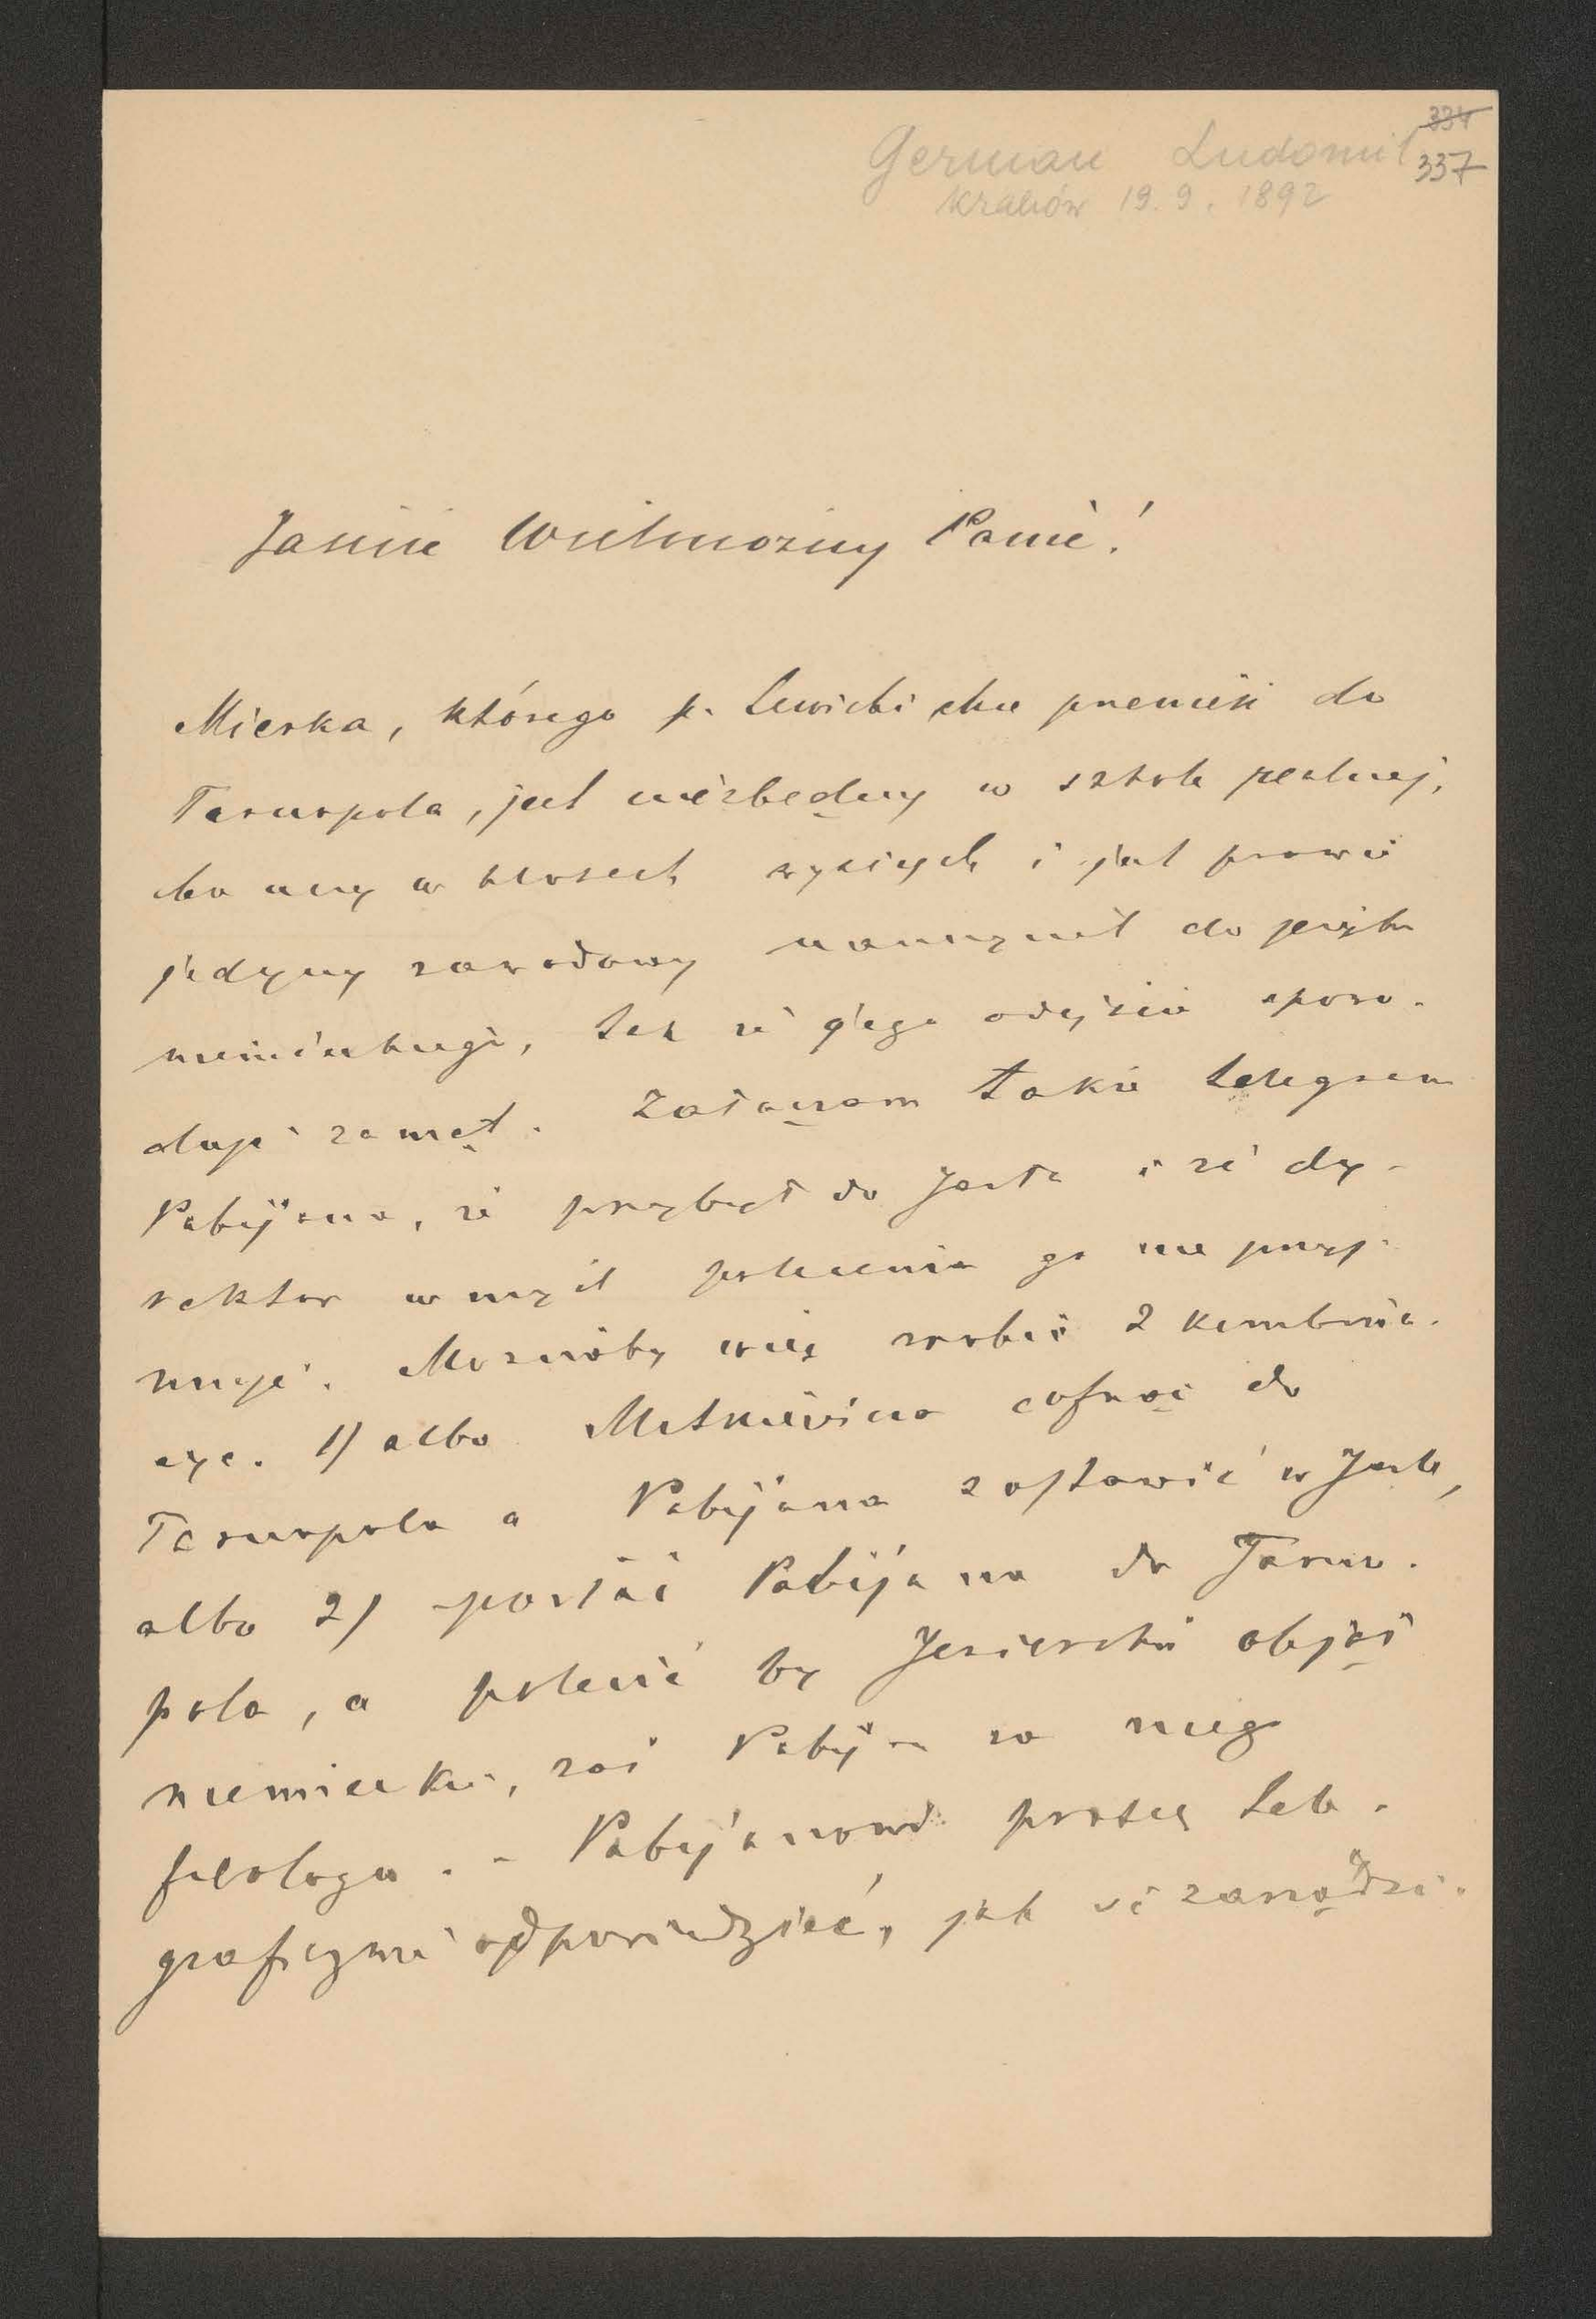 334
German Ludomił 337
Kraków 19. 9. 1892
Jaśnie Wielmożny Panie!
Mierka, którego p. Lewicki chce przenieść do
Tarnopola, jest niezbędny w szkole realnej,
bo uczy w klasach wyższych i jest prawie
jedyny zawodowy nauczyciel do języka
niemieckiego, tak że jego odejście spowo-
duje zamęt. Załączam także telegram
Pabijana, że przybył do Jasła i że dy-
rektor w myśl polecenia go nie przyj-
muje. Możnaby więc zrobić 2 kombina-
cye. 1) albo cofnąć do
Tarnopola a Pabijana zostawić w Jaśle,
albo 2) posłać Pabijana do Tarno-
pola, a polecić by Jezierski objął
niemieckie, zaś Pabijan za niego
filologię. - Pabijanowi proszę tele-
graficznie odpowiedzieć, jak się zarządzi.